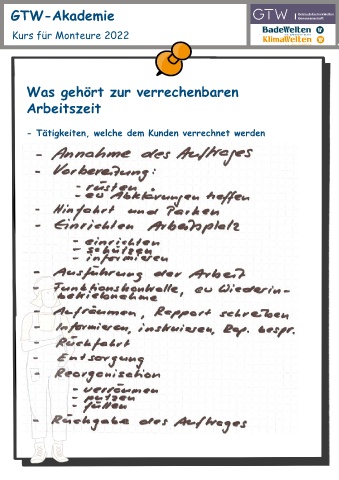 GTW-Akademie
Kurs für Monteure 2022
GTW
BadeWelten
KlimaWelten
Was gehört zur verrechenbaren
Arbeitszeit
- Tätigkeiten, welche dem Kunden verrechnet werden
- Annahme des Auftrages
- Vorbereitung:
- rüsten
- ev Abklärungen treffen
- Hinfahrt und Parken
- Einrichten Arbeitsplatz
- einrichten
- schützen
- informieren
- Ausführung der Arbeit
- Funktionskontrolle, ev Wiederin-
betriebnahme
- Aufräumen, Rapport schreiben
- Informieren, instruieren, Rap. bespr.
- Rückfahrt
- Entsorgung
- Reorganisation
- verräumen
- putzen
- füllen
- Rückgabe des Auftrages